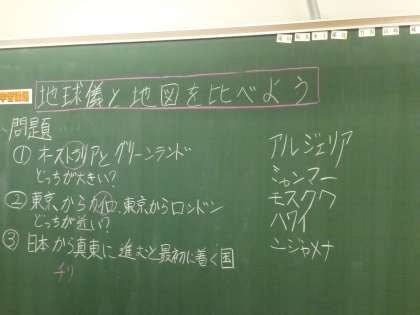 地球儀と地図を比べよう
問題
①オーストラリアとグリーンランド
どっちが大きい?
②東京からカイロ、東京からロンドン
どっちが近い?
③日本から真東に進むと最初に着く国
チリ
アルジェリア
ミャンマー
モスクワ
ハワイ
ンジャメナ